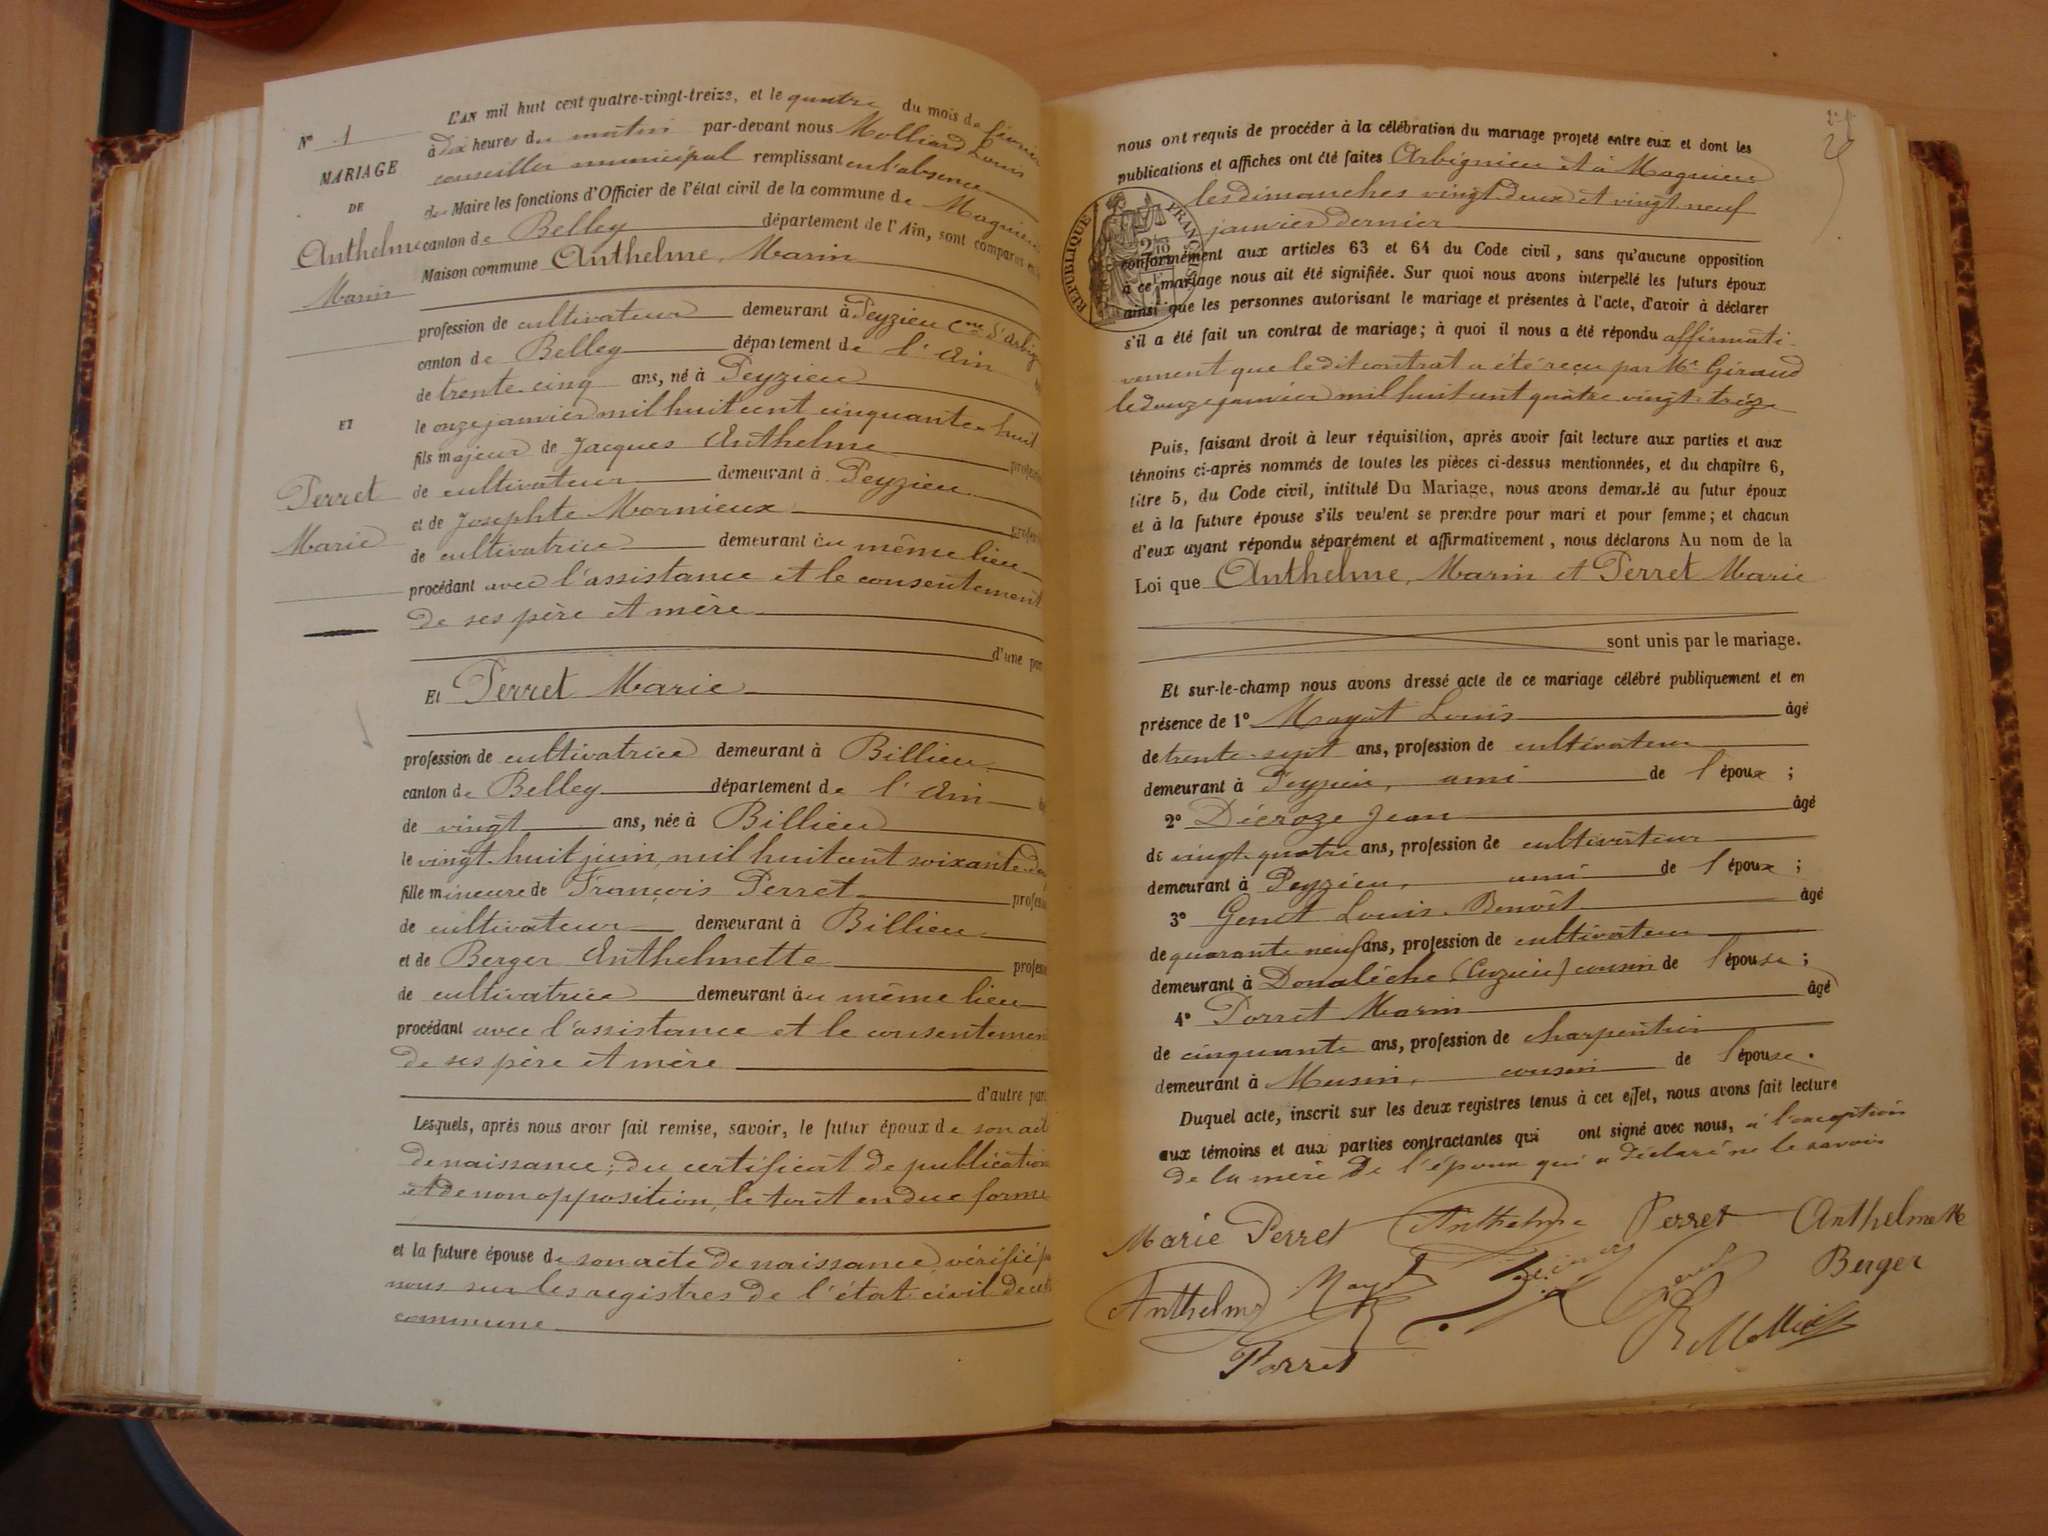 N° 1
MARIAGE
DE
Anthelme
Marin
ET
Perret
Marie
L'AN mil huit cent quatre-vingt-treize, et le quatre du mois de février
à dix heures du matin par-devant nous Molliard Louis
conseiller municipal remplissant en l'absence
du Maire les fonctions d'Officier de l'état civil de la commune de Magnieu
canton de Belley département de l'Ain, sont comparus en la
Maison commune Anthelme, Marin
profession de cultivateur demeurant à Peyzieu Cne d'Arbig
canton de Belley département de l'Ain
de trente cinq ans, né à Peyzieu
le onze janvier mil huit cent cinquante huit
fils majeur de Jacques Anthelme
de cultivateur demeurant à Peyzieu
et de Josephte Mornieux
de cultivatrice demeurant au même lieu
procédant avec l'assistance et le consentement
de ses père et mère
d'une par
Et Perret Marie
profession de cultivatrice demeurant à Billieu
canton de Belley département de l'Ain
de vingt ans, née à Billieu
le vingt huit juin mil huit cent soixante
fille mineure de François Perret
de cultivateur demeurant à Billieu
et de Berger Anthelmette
de cultivatrice demeurant au même lieu
procédant avec l'assistance et le consentemen
de ses père et mère
d'autre part
Lesquels, après nous avoir fait remise, savoir, le futur époux de son acte
de naissance; du certificat de publication
et de non opposition, le tout en due forme
et la future épouse de son acte de naissance vérifié
nous sur les registres de l'état civil de cette
commune
nous ont requis de procéder à la célébration du mariage projeté entre eux et dont les
publications et affiches ont été faites Arbignieu et à Magnieu
les dimanches vingt deux et vingt neuf
janvier dernier
RÉPUBLIQUE FRANÇAISE
conformément aux articles 63 et 64 du Code civil, sans qu'aucune opposition
à ce mariage nous ait été signifiée. Sur quoi nous avons interpellé les futurs époux
ainsi que les personnes autorisant le mariage et présentes à l'acte, d'avoir à déclarer
s'il a été fait un contrat de mariage; à quoi il nous a été répondu affirmati-
vement que le dit contrat a été reçu par Me Giraud
le douze janvier mil huit cent quatre vingt-treize
Puis, faisant droit à leur réquisition, après avoir fait lecture aux parties et aux
témoins ci-après nommés de toutes les pièces ci-dessus mentionnées, et du chapitre 6,
titre 5, du Code civil, intitulé Du Mariage, nous avons demandé au futur époux
et à la future épouse s'ils veulent se prendre pour mari et pour femme; et chacun
d'eux ayant répondu séparément et affirmativement, nous déclarons Au nom de la
Loi que Anthelme, Marin et Perret Marie
sont unis par le mariage.
Et sur-le-champ nous avons dressé acte de ce mariage célébré publiquement et en
présence de 1° Mayot Louis âgé
de trente-sept ans, profession de cultivateur
demeurant à Peyzieu, ami de l'époux;
2° Décroze Jean âgé
de vingt-quatre ans, profession de cultivateur
demeurant à Peyzieu, ami de l'époux;
3° Genet Louis-Benoît âgé
de quarante neuf ans, profession de cultivateur
demeurant à Donalèche (Cuzieu) cousin de l'épouse;
4° Porret Marin âgé
de cinquante ans, profession de charpentier
demeurant à Musin, cousin de l'épouse.
Duquel acte, inscrit sur les deux registres tenus à cet effet, nous avons fait lecture
aux témoins et aux parties contractantes qui ont signé avec nous, à l'exception
de la mère de l'époux qui a déclaré ne le savoir
Marie Perret Anthelme Perret Anthelmette
Berger
Anthelme Mayot
Porret